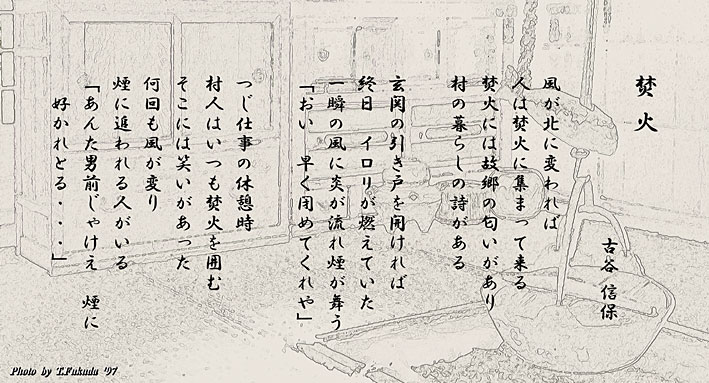 焚火
古谷 信保
風が北に変われば
人は焚火に集まって来る
焚火には故郷の匂いがあり
村の暮らしの詩がある
玄関の引き戸を開ければ
終日 イロリが燃えていた
一瞬の風に炎が流れ煙が舞う
「おい 早く閉めてくれや」
つじ仕事の休憩時
村人はいつも焚火を囲む
そこには笑いがあった
何回も風が変り
煙に追われる人がいる
「あんた男前じゃけえ 煙に
好かれとる・・・」
Photo by T.Fukuda '97